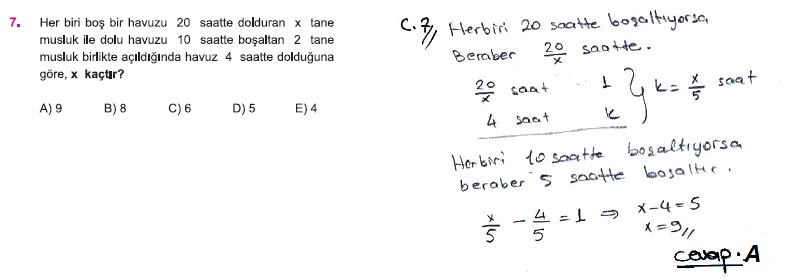 7. Her biri boş bir havuzu 20 saatte dolduran x tane
musluk ile dolu havuzu 10 saatte boşaltan 2 tane
musluk birlikte açıldığında havuz 4 saatte dolduğuna
göre, x kaçtır?
A) 9 B) 8 C) 6 D) 5 E) 4
C.7// Herbiri 20 saatte boşaltıyorsa
Beraber 20/x saatte.
20/x saat 1
4 saat k
} k = x/5 saat
Herbiri 10 saatte boşaltıyorsa
beraber 5 saatte boşaltır.
x/5 - 4/5 = 1 ⇒ x-4=5
x=9//
cevap.A